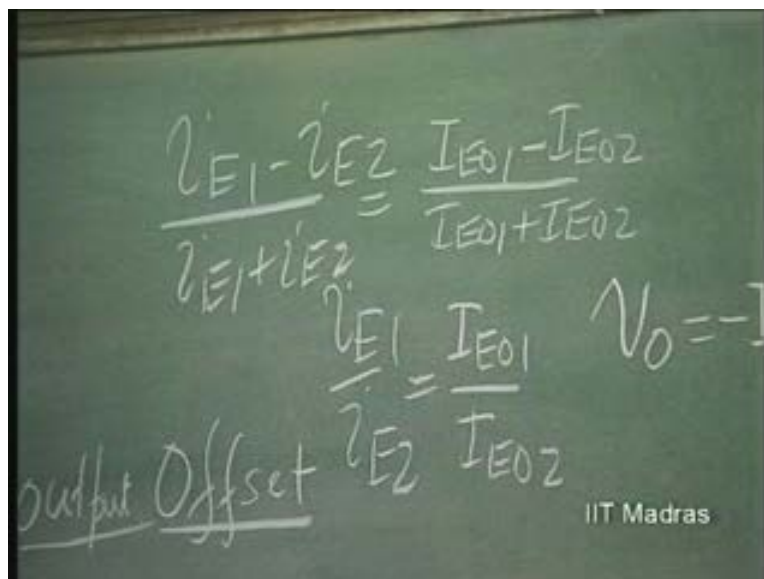 i_E1 - i_E2 / i_E1 + i_E2 = I_E01 - I_E02 / I_E01 + I_E02
i_E1 / i_E2 = I_E01 / I_E02
V_0 = -I
output Offset
IIT Madras